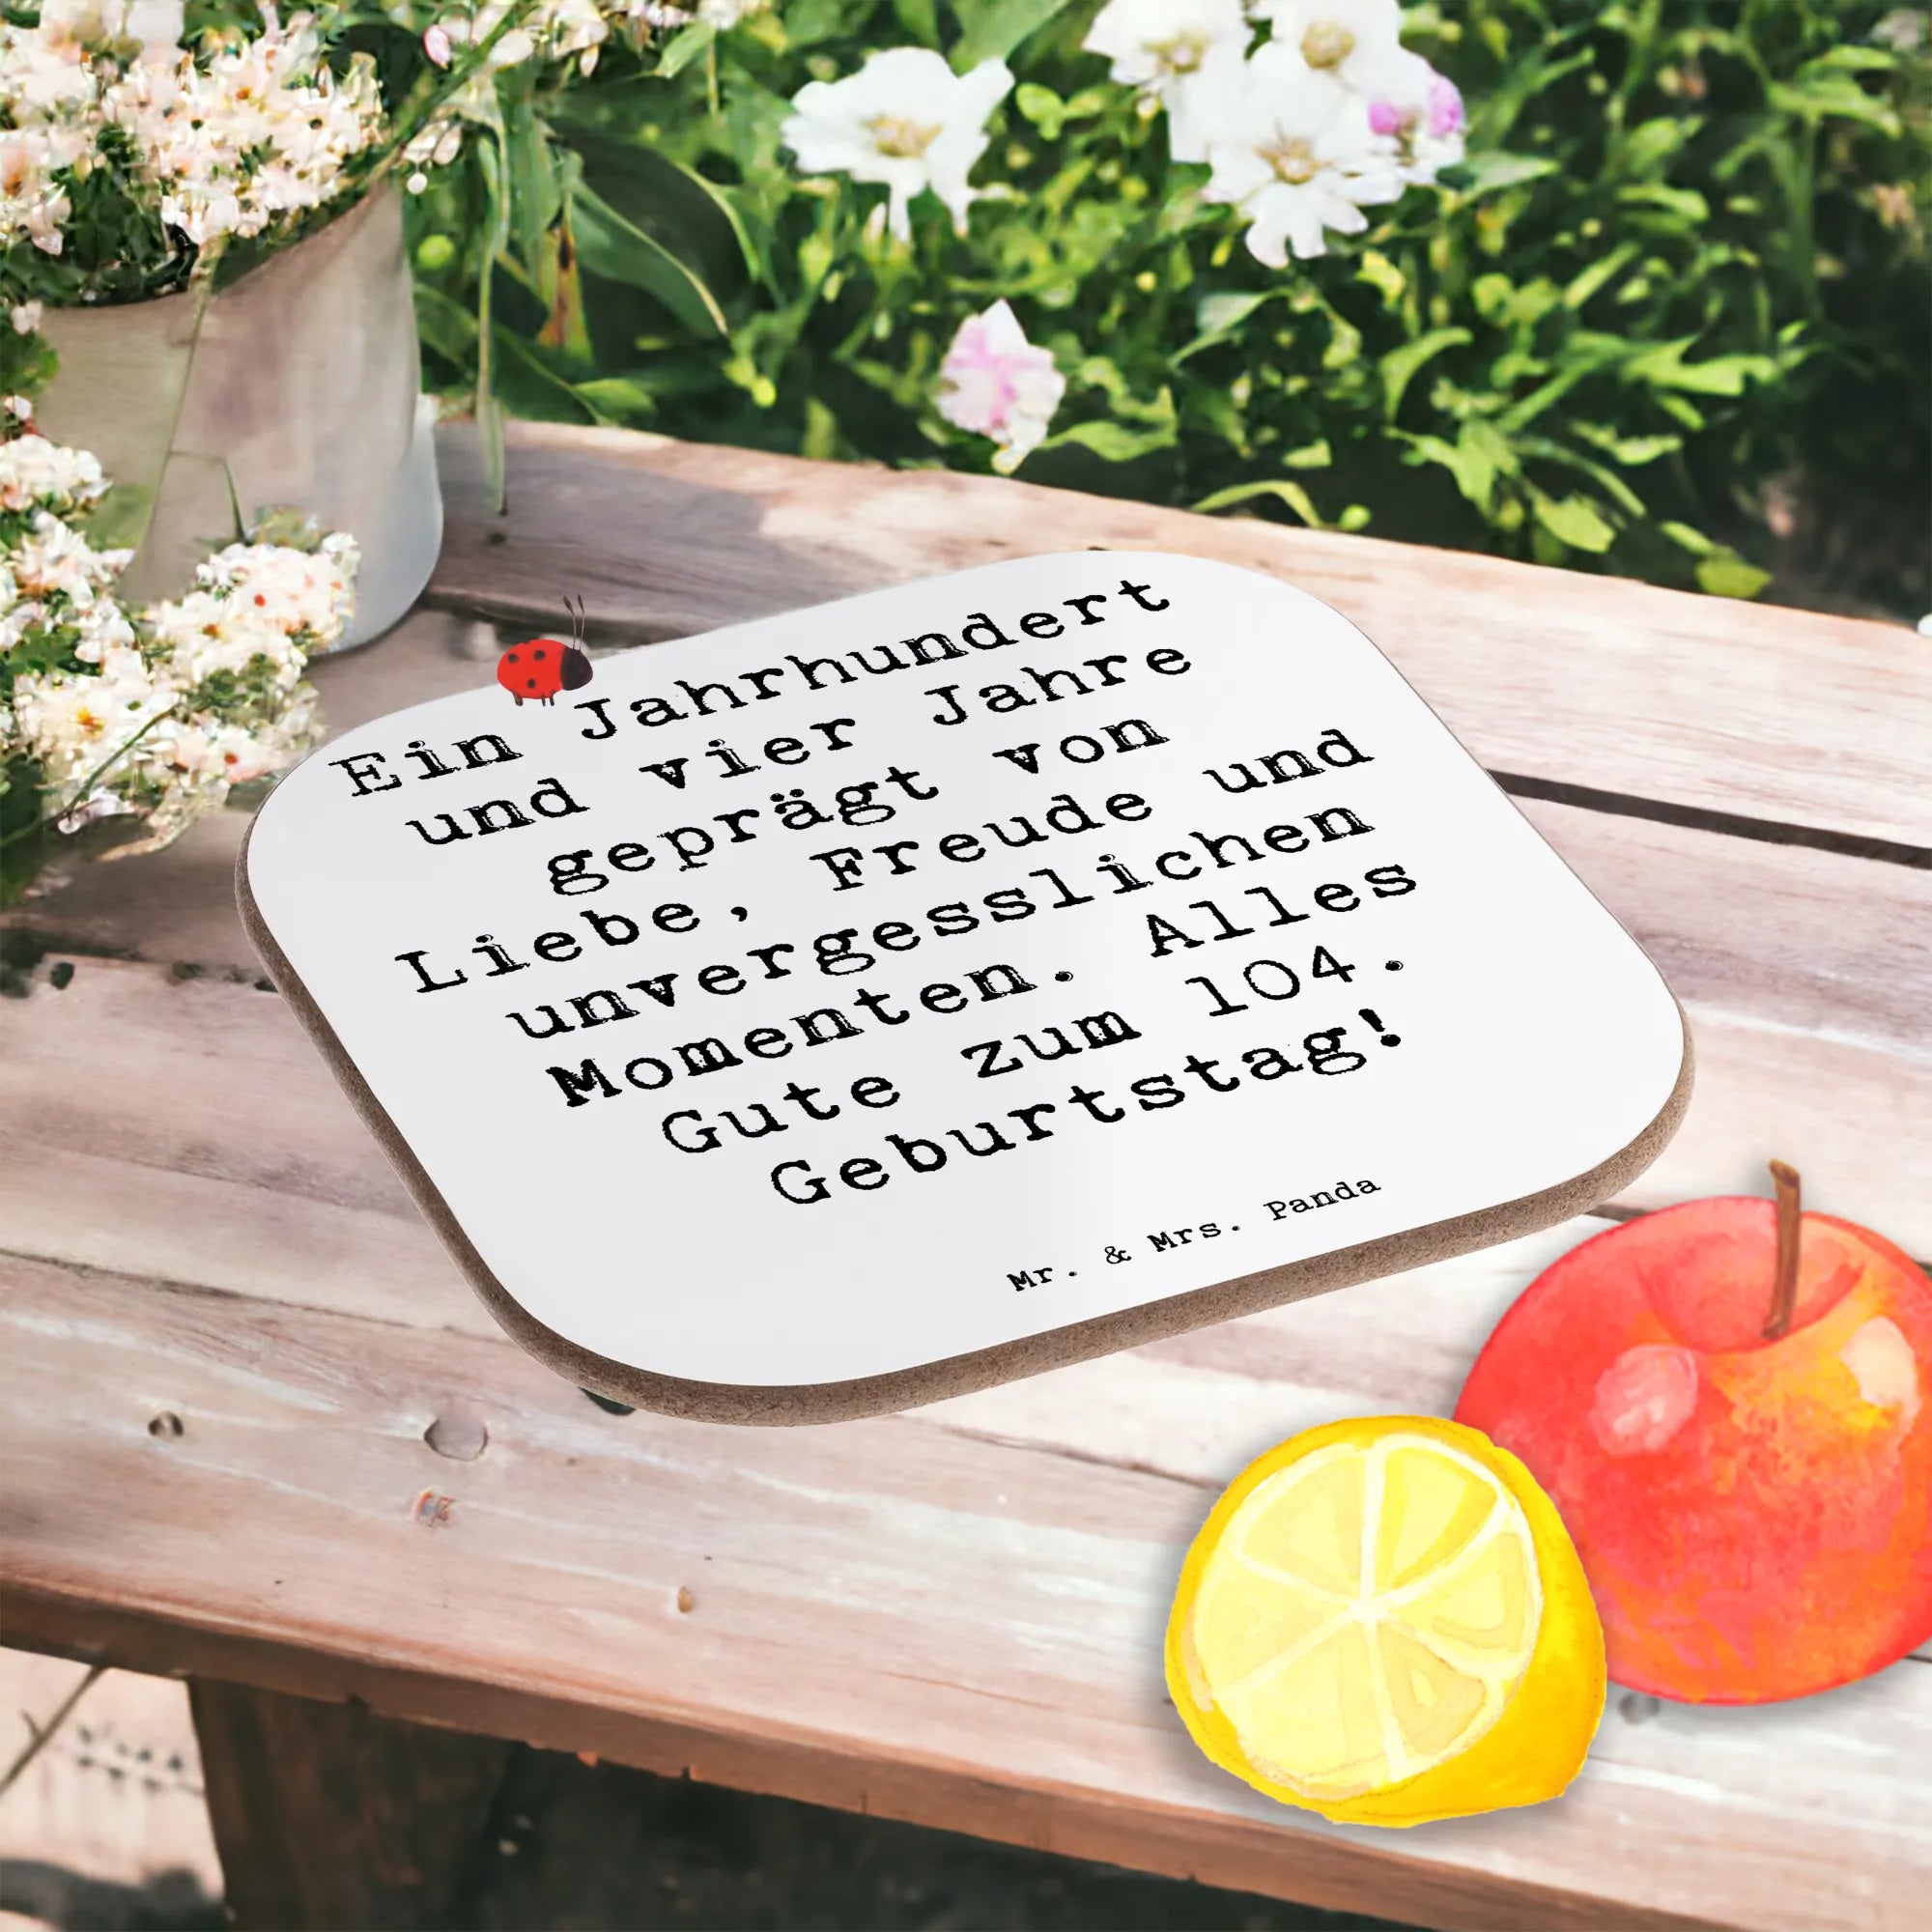 Ein Jahrhundert
und vier Jahre
geprägt von
Liebe, Freude und
unvergesslichen
Momenten. Alles
Gute zum 104.
Geburtstag!
Mr. & Mrs. Panda